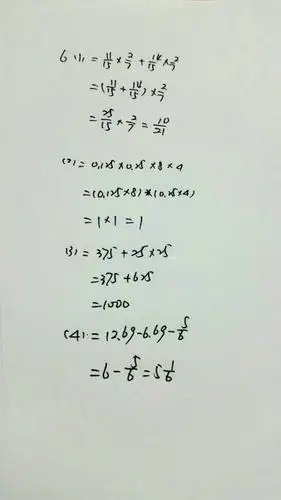 6 (1) = 11/15 × 2/7 + 14/15 × 2/7
= (11/15 + 14/15) × 2/7
= 25/15 × 2/7 = 10/21
(2) = 0.125 × 0.25 × 8 × 4
= (0.125 × 8) × (0.25 × 4)
= 1 × 1 = 1
(3) = 375 + 25 × 25
= 375 + 625
= 1000
(4) = 12.69 - 6.69 - 5/6
= 6 - 5/6 = 5 1/6